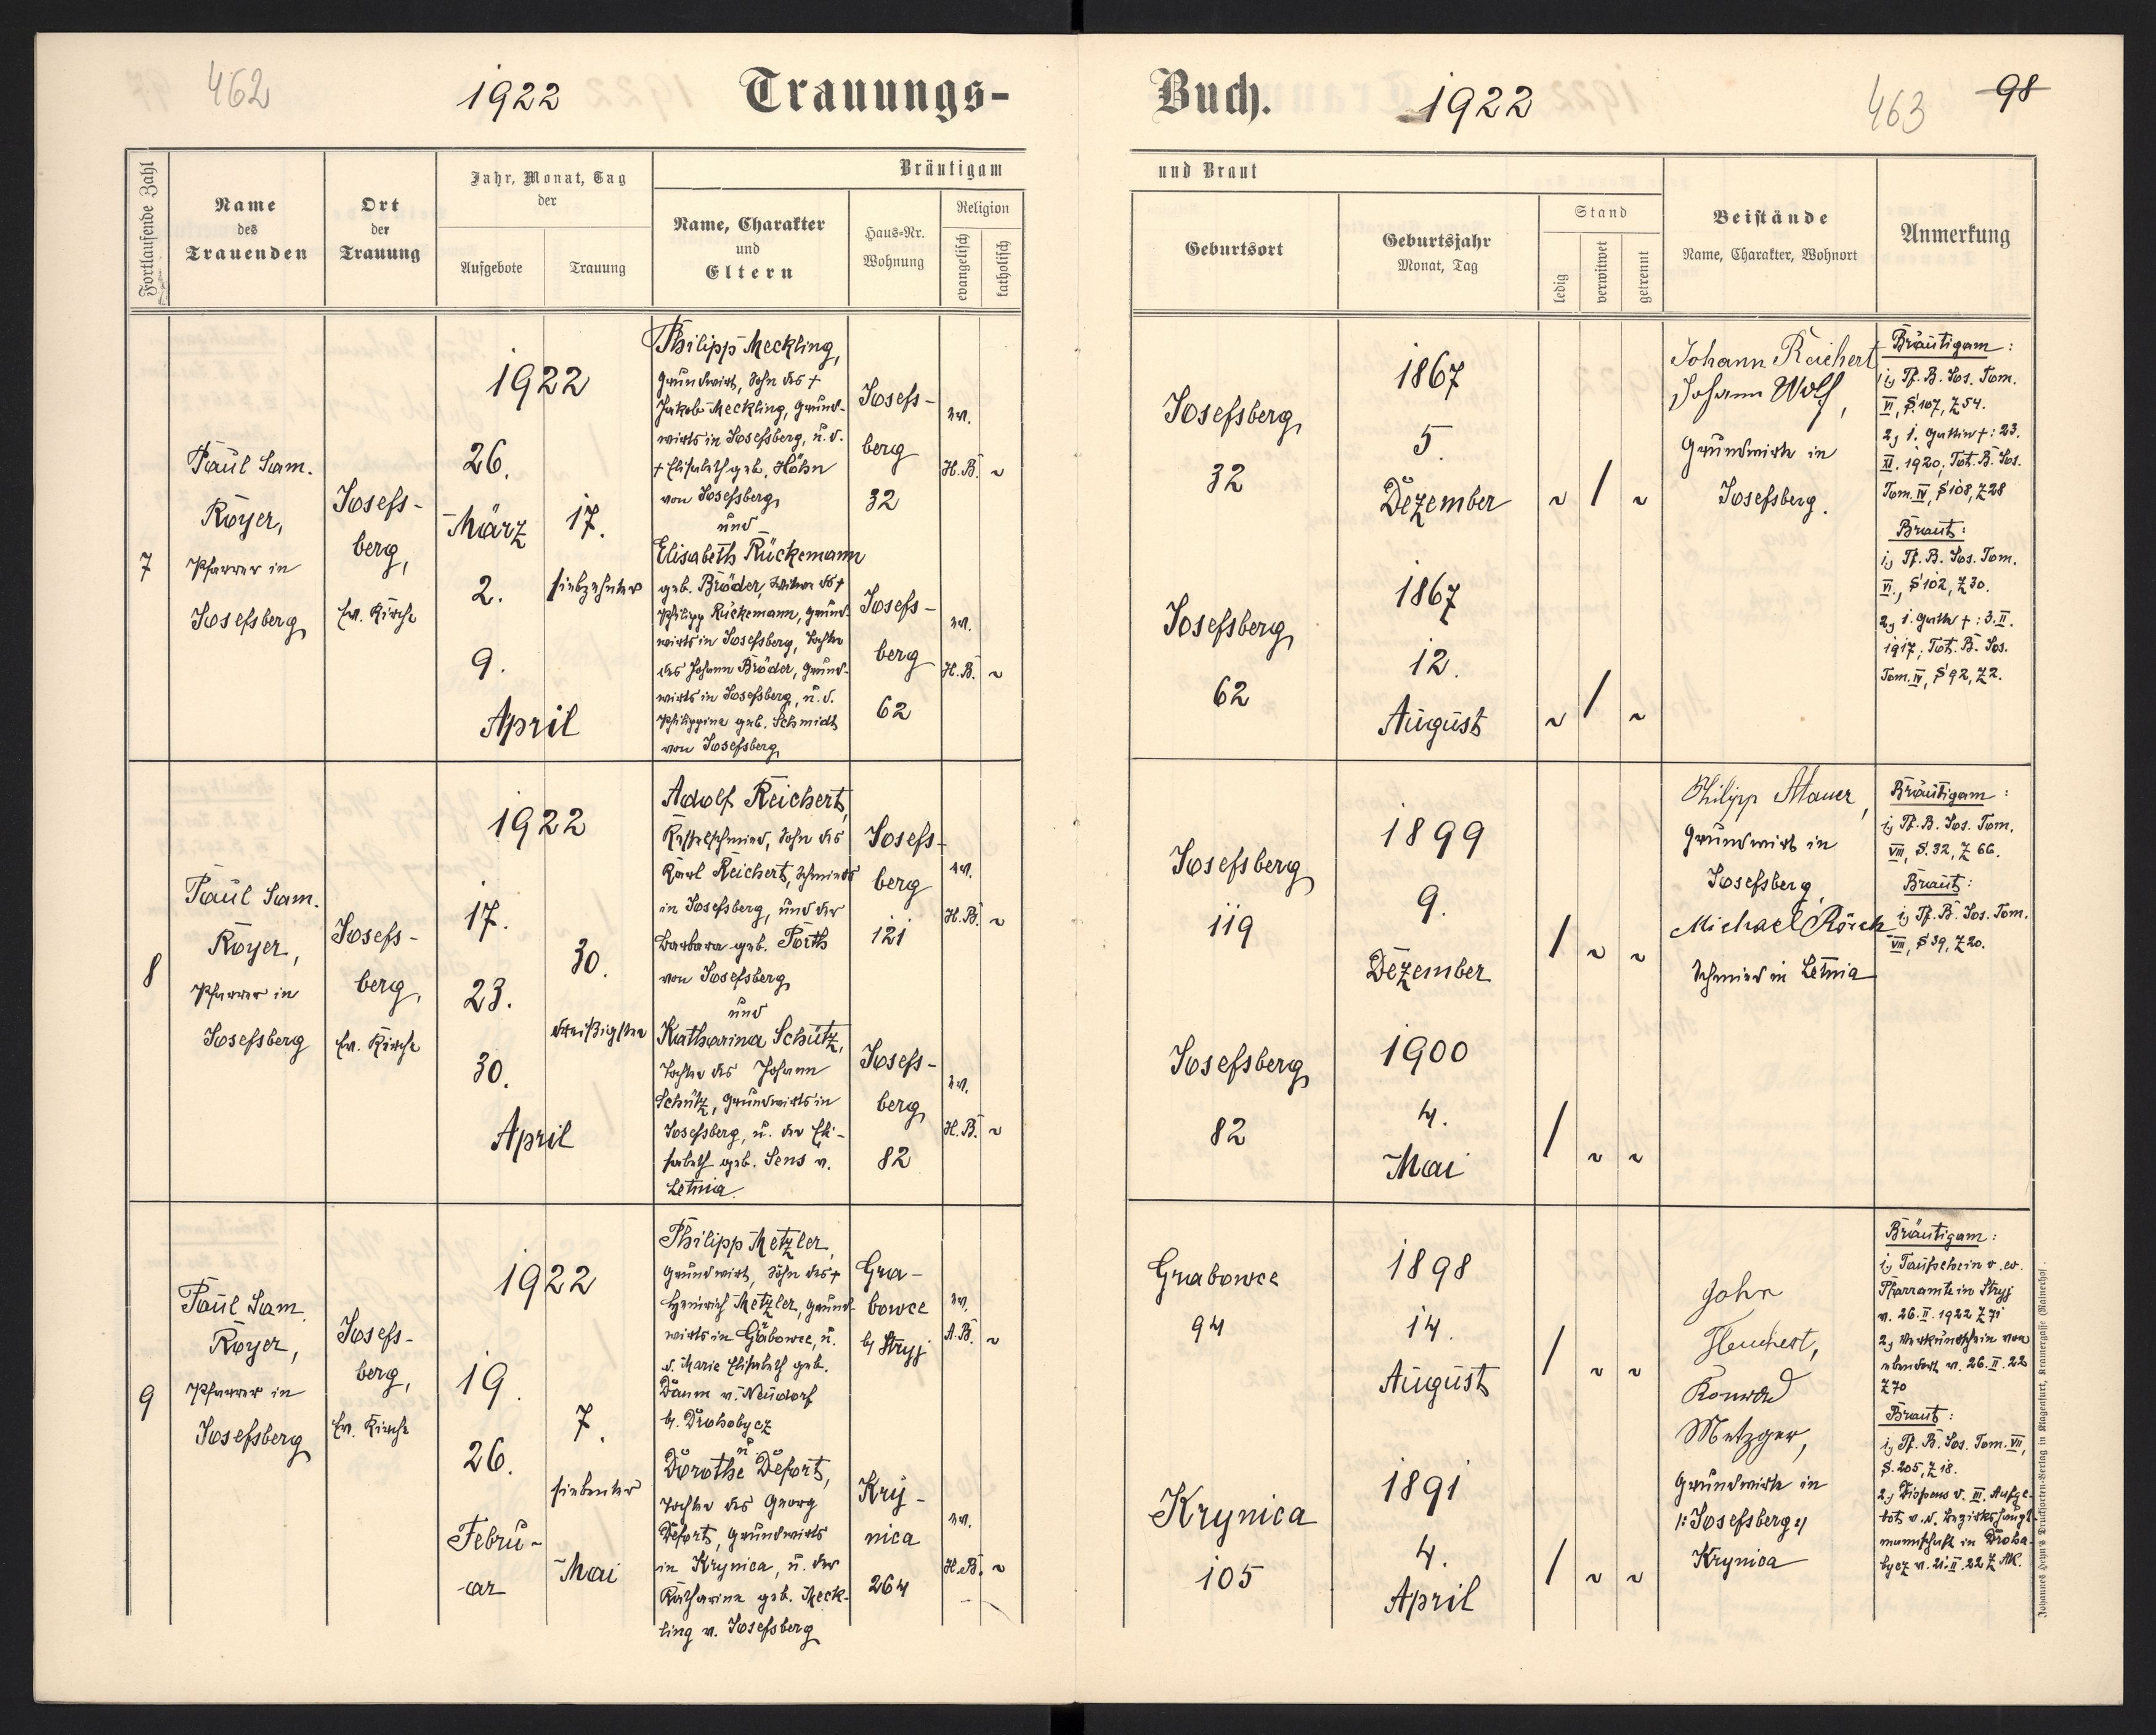 462
1922
Trauungs-
Buch.
1922
463
98
Fortlaufende Zahl
Name
des
Trauenden
Ort
der
Trauung
Jahr, Monat, Tag
der
Aufgebote
Trauung
Bräutigam
Name, Charakter
und
Eltern
Haus-Nr.
Wohnung
Religion
evangelisch
katholisch
und Braut
Geburtsort
Geburtsjahr
Monat, Tag
Stand
ledig
verwitwet
getrennt
Beistände
Name, Charakter, Wohnort
Anmerkung
7
Paul Sam.
Royer,
Pfarrer in
Josefsberg
Josefs-
berg,
Ev. Kirche
1922
26.
März
2.
9.
April
17.
siebzehnter
Philipp Meckling,
Grundwirt, Sohn des +
Jakob Meckling, Grund-
wirts in Josefsberg, u. d.
+ Elisabeth geb. Höhn
von Josefsberg
und
Elisabeth Rückemann
geb. Bröder, Witwe des +
Philipp Rückemann, Grund-
wirts in Josefsberg, Tochter
des Johann Bröder, Grund-
wirts in Josefsberg, u. d.
Philippine geb. Schmidt
von Josefsberg
Josefs-
berg
32
Josefs-
berg
62
ev.
H.B. ~
ev.
H.B. ~
Josefsberg
32
Josefsberg
62
1867
5.
Dezember
1867
12.
August
~ / ~
~ / ~
Johann Reichert
Johann Wolf,
Grundwirte in
Josefsberg.
Bräutigam:
1, Tf. B. Jos. Tom.
VI, S. 107, Z 54.
2, 1. Gattin +: 23.
XI. 1920; Tot. B. Jos.
Tom. IV, S 108, Z 28
Braut:
1, Tf. B. Jos. Tom.
VI., S 102, Z 30.
2, 1. Gatte +: 3. II.
1917; Tot. B. Jos.
Tom. IV, S 92, Z 2.
8
Paul Sam.
Royer,
Pfarrer in
Josefsberg
Josefs-
berg,
Ev. Kirche
1922
17.
23.
30.
April
30.
dreißigster
Adolf Reichert,
Kesselschmied, Sohn des
Karl Reichert, Schmieds
in Josefsberg, und der
Barbara geb. Porth
von Josefsberg
und
Katharina Schütz,
Tochter des Johann
Schütz, Grundwirts in
Josefsberg, u. der Eli-
sabeth geb. Sens v.
Letnia.
Josefs-
berg
121
Josefs-
berg
82
ev.
H.B. ~
ev.
H.B. ~
Josefsberg
119
Josefsberg
82
1899
9.
Dezember
1900
4.
Mai
/ ~ ~
/ ~ ~
Philipp Mauer,
Grundwirt in
Josefsberg,
Michael Rörich
Schmied in Letnia
Bräutigam:
1, Tf. B. Jos. Tom.
VIII, S. 32, Z 66.
Braut:
1, Tf. B. Jos. Tom.
VIII, S 39, Z 20.
9
Paul Sam.
Royer,
Pfarrer in
Josefsberg
Josefs-
berg,
Ev. Kirche
1922
19.
26.
Febru-
-ar
7.
siebenter
Mai
Philipp Metzler,
Grundwirt, Sohn des +
Heinrich Metzler, Grund-
wirts in Gabowce, u.
d. Marie Elisabeth geb.
Daum v. Neudorf
b. Drohobycz
u
Dorothe Defort,
Tochter des Georg
Defort, Grundwirts
in Krynica, u. der
Katharine geb. Meck-
ling v. Josefsberg
Gra-
bowce
b/ Stryj
Kry-
nica
264
ev.
A.B. ~
ev.
H.B. ~
Grabowce
94
Krynica
105
1898
14.
August
1891
4.
April
/ ~ ~
/ ~ ~
John
Konrad
Metzger,
Grundwirte in
/: Josefsberg :/
Krynica
Bräutigam:
1, Taufschein v. ev.
Pfarramte in Stryj
v. 26. II. 1922 Z 71
2, Verkündschein von
ebendort v. 26. II. 22
Z 70
Braut:
1, Tf. B. Jos. Tom. VII,
S. 205, Z 18.
2, Dispens v. III. Aufge-
bots v. d. Bezirkshaupt-
mannschaft in Droho-
bycz v. 21. II. 22 Z
Johannes Heyn's Drucksorten-Verlag in Klagenfurt, Kramergasse (Rainerhof).